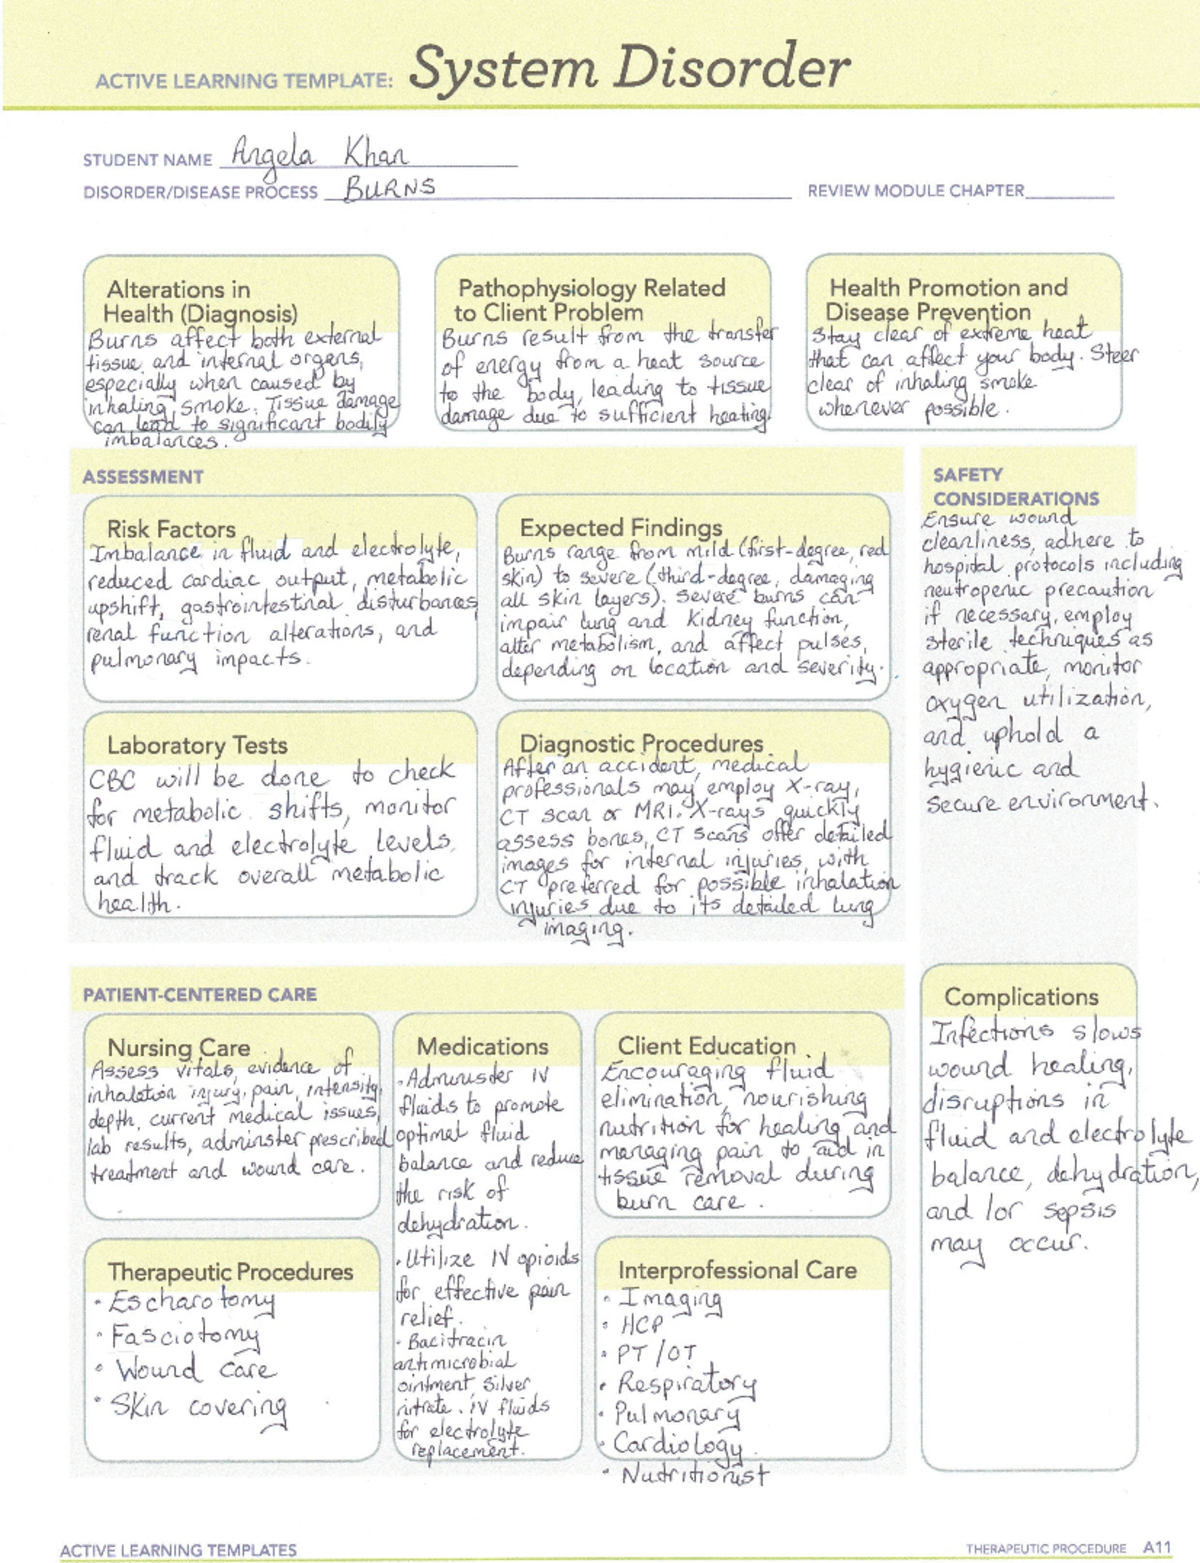 ACTIVE LEARNING TEMPLATE: System Disorder
STUDENT NAME Angela Khan
DISORDER/DISEASE PROCESS BURNS
REVIEW MODULE CHAPTER
Alterations in
Health (Diagnosis)
Burns affect both external
tissue and internal organs,
especially when caused by
inhaling smoke. Tissue damage
can lead to significant bodily
imbalances.
Pathophysiology Related
to Client Problem
Burns result from the transfer
of energy from a heat source
to the body, leading to tissue
damage due to sufficient heating.
Health Promotion and
Disease Prevention
Stay clear of extreme heat
that can affect your body. Steer
clear of inhaling smoke
whenever possible.
ASSESSMENT
Risk Factors
Imbalance in fluid and electrolyte,
reduced cardiac output, metabolic
upshift, gastrointestinal disturbances,
renal function alterations, and
pulmonary impacts.
Expected Findings
Burns range from mild (first-degree, red
skin) to severe (third-degree, damaging
all skin layers). Severe burns can
impair lung and kidney function,
alter metabolism, and affect pulses,
depending on location and severity.
Laboratory Tests
CBC will be done to check
for metabolic shifts, monitor
fluid and electrolyte levels,
and track overall metabolic
health.
Diagnostic Procedures
After an accident, medical
professionals may employ X-ray,
CT scan or MRI. X-rays quickly
assess bones, CT scans offer detailed
images for internal injuries, with
CT preferred for possible inhalation
injuries due to its detailed lung
imaging.
SAFETY
CONSIDERATIONS
Ensure wound
cleanliness, adhere to
hospital protocols including
neutropenic precaution
if necessary, employ
sterile techniques as
appropriate, monitor
oxygen utilization,
and uphold a
hygienic and
secure environment.
PATIENT-CENTERED CARE
Nursing Care
Assess vitals, evidence of
inhalation injury, pain, intensity,
depth, current medical issues,
lab results, adminster prescribed
treatment and wound care.
Medications
• Administer IV
fluids to promote
optimal fluid
balance and reduce
the risk of
dehydration.
• Utilize IV opioids
for effective pain
relief.
• Bacitracin
antimicrobial
ointment, silver
nitrate. IV fluids
for electrolyte
replacement.
Client Education
Encouraging fluid
elimination, nourishing
nutrition for healing and
managing pain to aid in
tissue removal during
burn care.
Therapeutic Procedures
• Escharotomy
• Fasciotomy
• Wound care
• Skin covering
Interprofessional Care
• Imaging
• HCP
• PT/OT
• Respiratory
• Pulmonary
• Cardiology
• Nutritionist
Complications
Infections slows
wound healing,
disruptions in
fluid and electrolyte
balance, dehydration,
and/or sepsis
may occur.
ACTIVE LEARNING TEMPLATES
THERAPEUTIC PROCEDURE A11